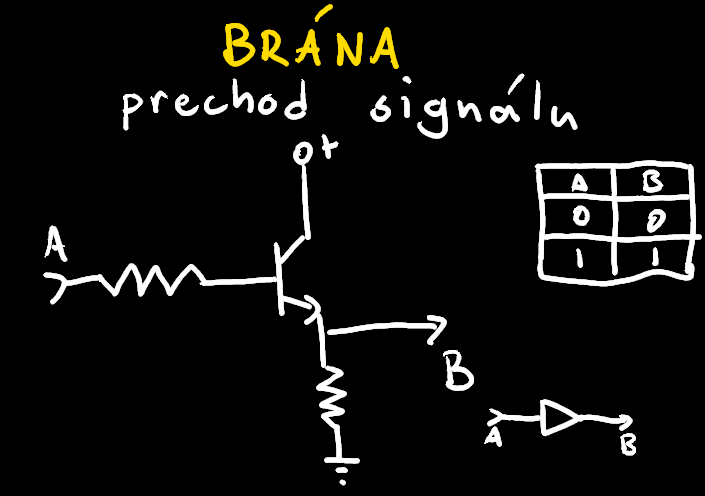 BRÁNA
prechod signálu
0+
A
B
A B
0 0
1 1
A B